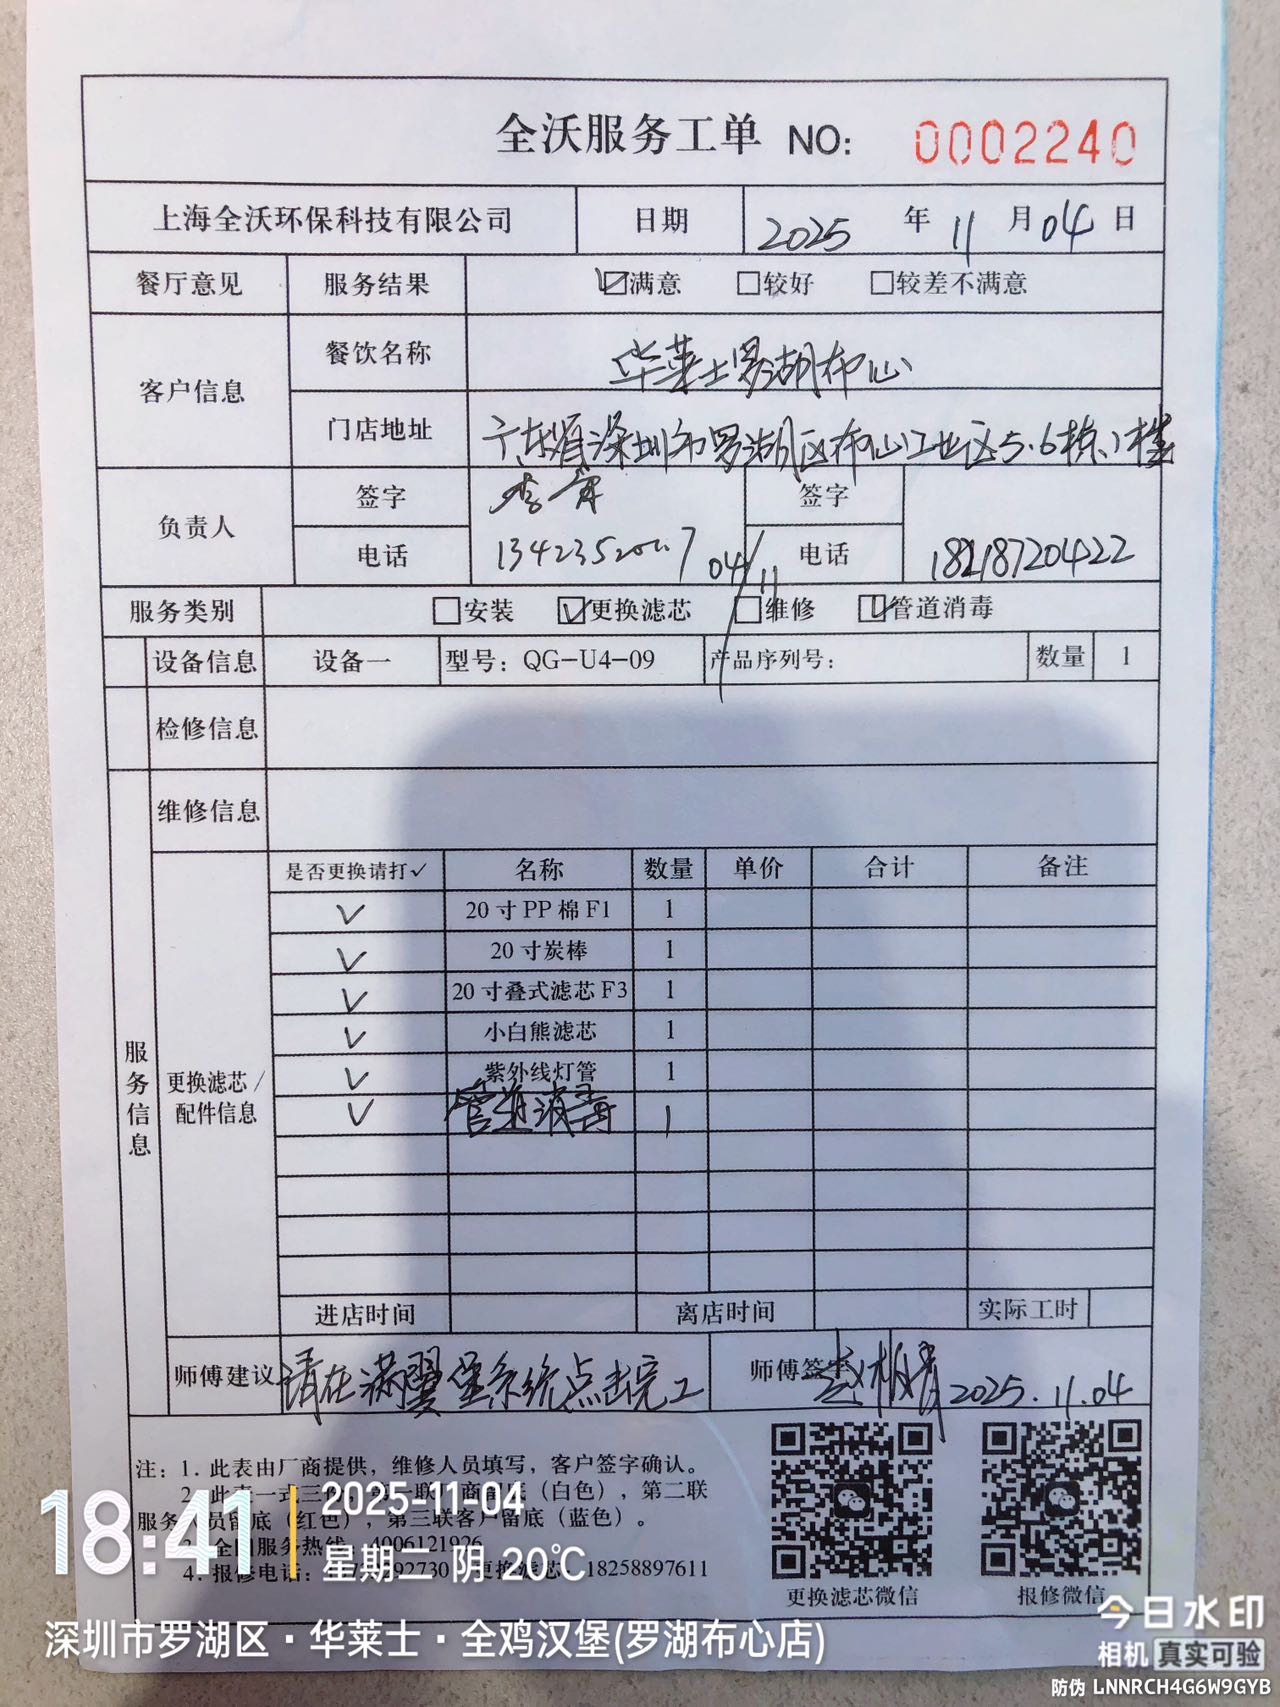 全沃服务工单 NO: 0002240
上海全沃环保科技有限公司 日期 2025 年 11 月 04 日
餐厅意见 服务结果 ☑满意 □较好 □较差不满意
客户信息 餐饮名称 华莱士罗湖布心
门店地址 广东省深圳市罗湖区布心工业区5.6栋1楼
负责人 签字 签字
电话 04/11 电话 18218720422
服务类别 □安装 ☑更换滤芯 □维修 ☑管道消毒
设备信息 设备一 型号：QG-U4-09 产品序列号： 数量 1
检修信息
维修信息
服务信息
更换滤芯/配件信息
是否更换请打✓ 名称 数量 单价 合计 备注
✓ 20寸PP棉F1 1
✓ 20寸炭棒 1
✓ 20寸叠式滤芯F3 1
✓ 小白熊滤芯 1
✓ 紫外线灯管 1
✓ 管道消毒 1
进店时间 离店时间 实际工时
师傅建议 请在满翼堡系统点击完工 师傅签字 2025.11.04
注：1. 此表由厂商提供，维修人员填写，客户签字确认。
2. 此表一式三 商留底（白色），第二联
服务 员留底（红色），第三联客户留底（蓝色）。
全国服务热线：4006121926
4. 报修电话： 92730 更换滤芯：18258897611
更换滤芯微信 报修微信
18:41 2025-11-04
星期二 阴 20℃
深圳市罗湖区·华莱士·全鸡汉堡(罗湖布心店)
今日水印
相机 真实可验
防伪 LNNRCH4G6W9GYB